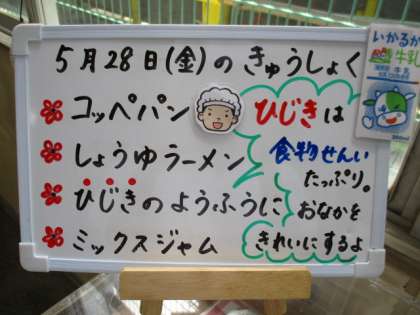 5月28日(金)のきゅうしょく
コッペパン
しょうゆラーメン
ひじきのようふうに
ミックスジャム
ひじきは
食物せんい
たっぷり。
おなかを
きれいにするよ
いかるが
牛乳